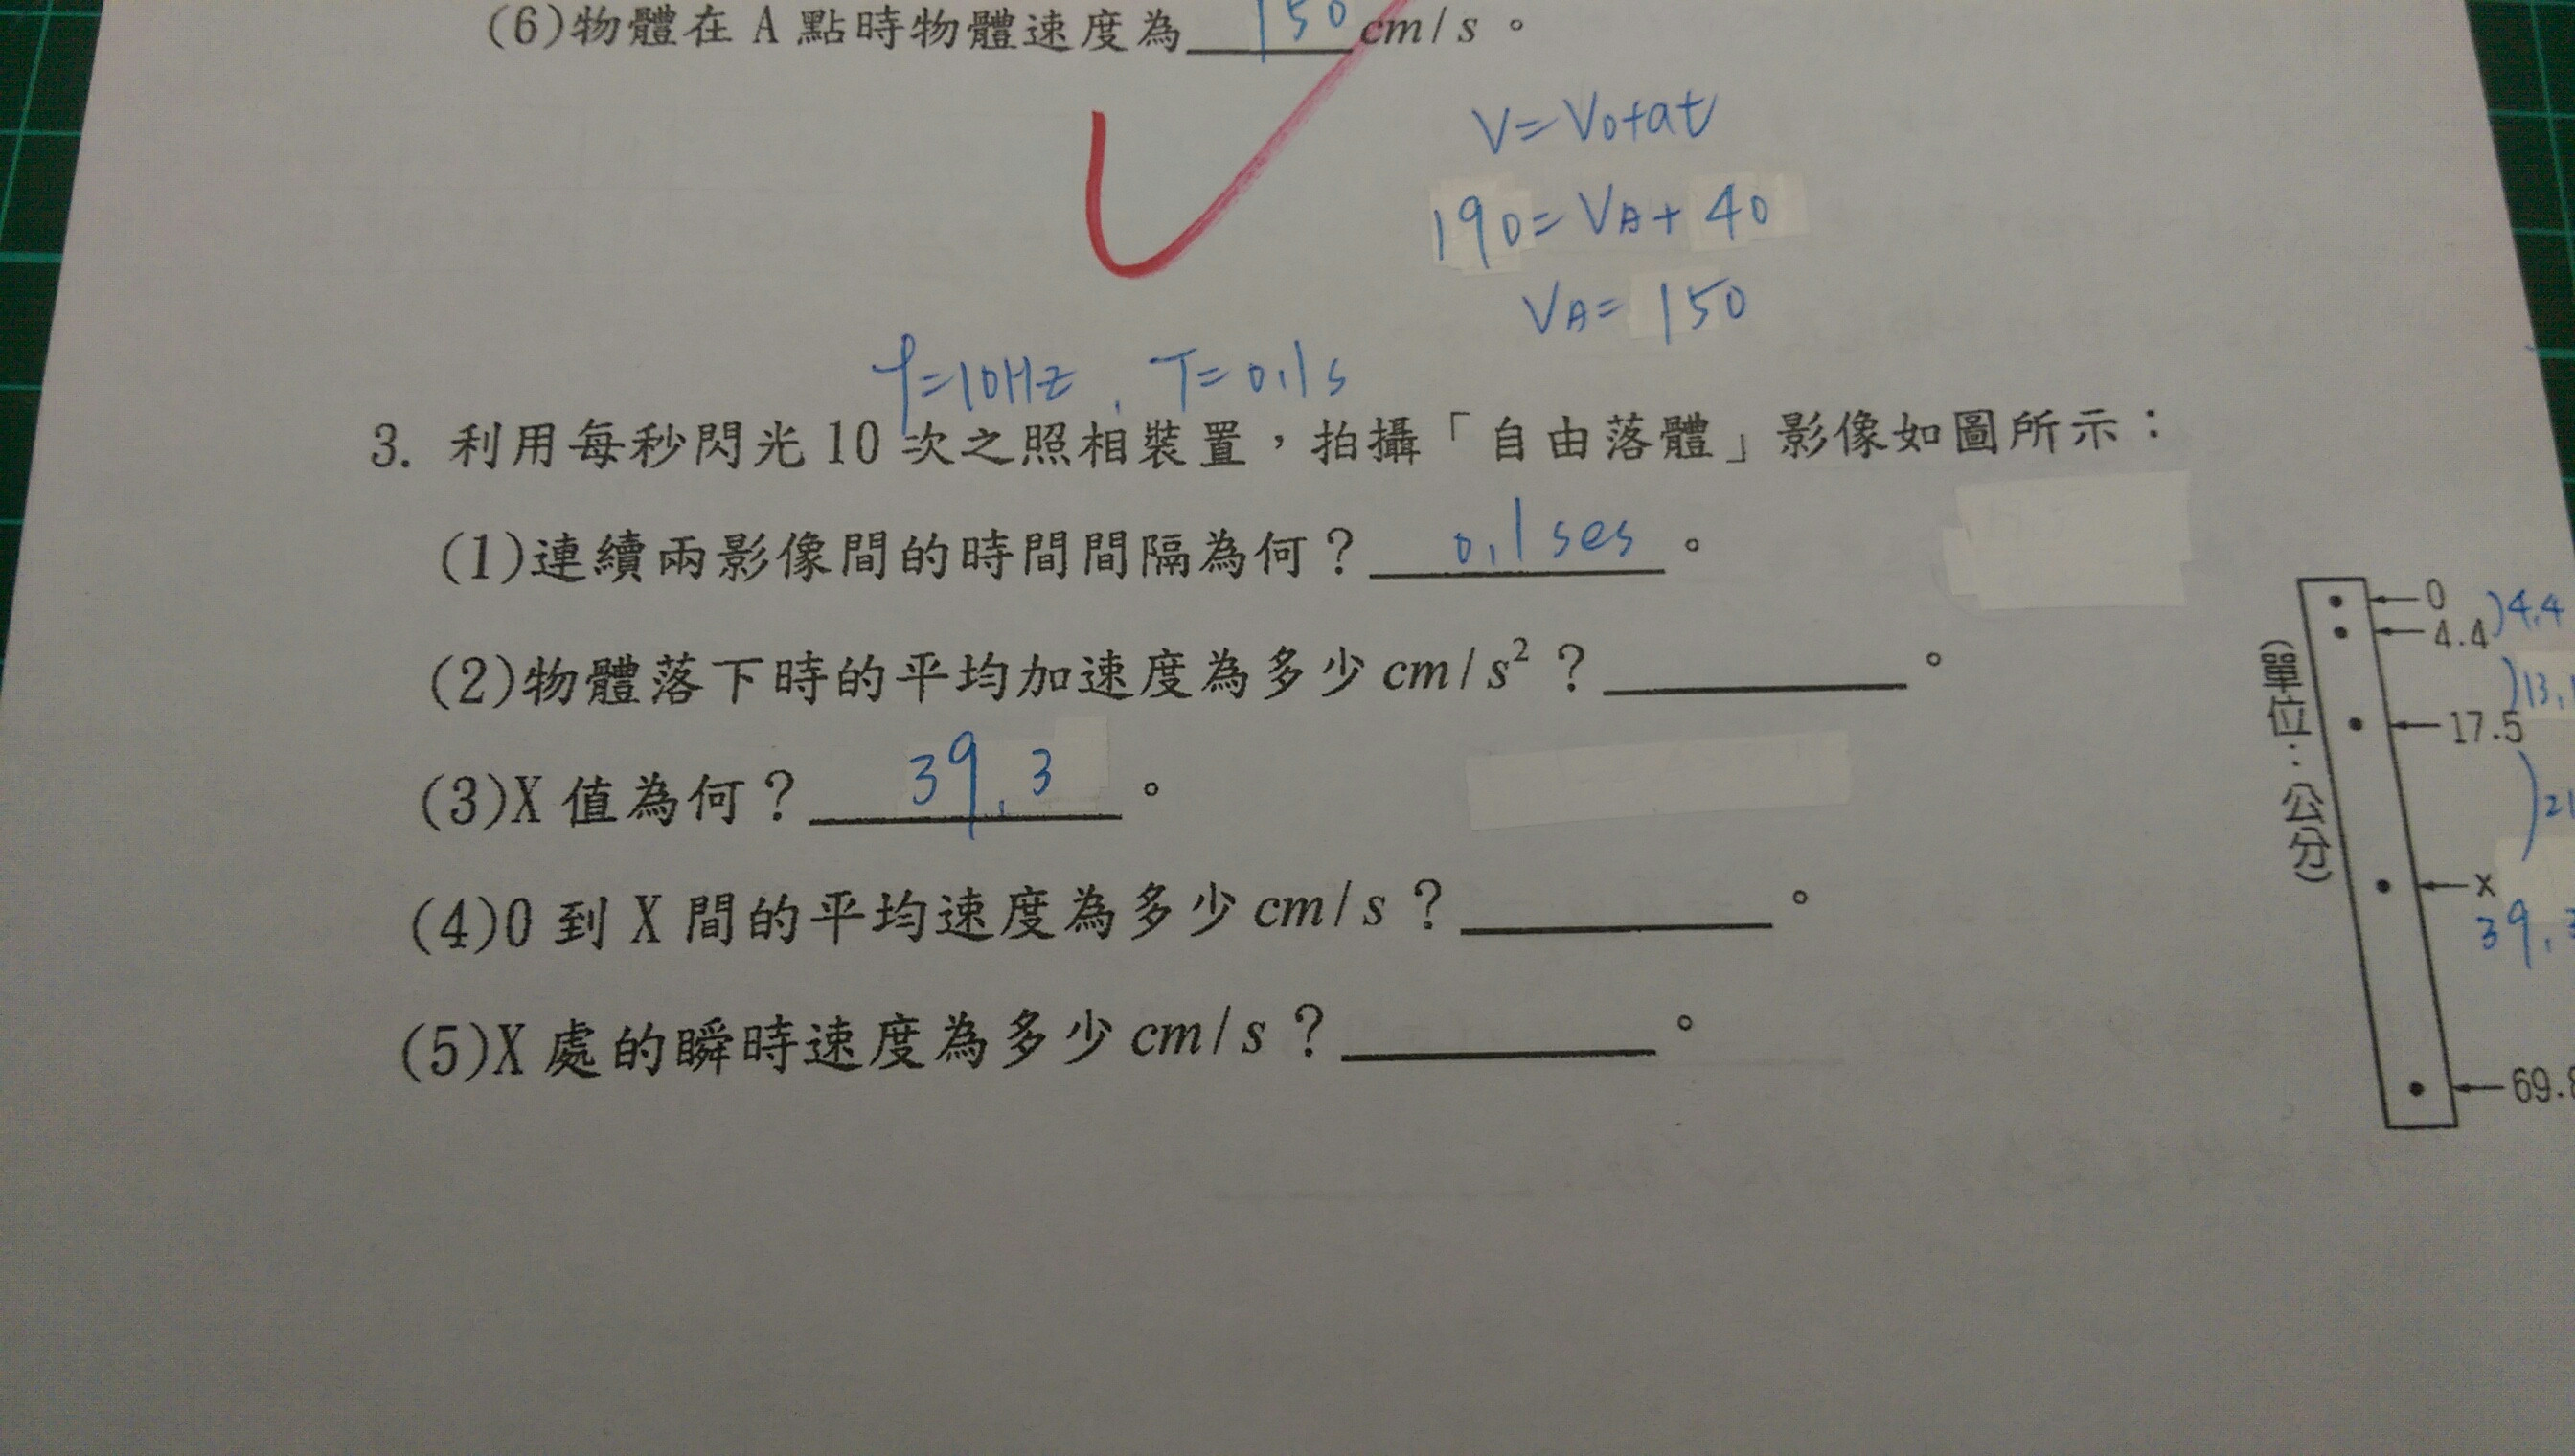 (6)物體在 A 點時物體速度為 150 cm/s。
V=V0+at
190=VA+40
VA=150
f=10Hz, T=0.1s
3. 利用每秒閃光10次之照相裝置，拍攝「自由落體」影像如圖所示：
(1)連續兩影像間的時間間隔為何？ 0.1 ses 。
(2)物體落下時的平均加速度為多少 cm/s²？ 。
(3)X 值為何？ 39.3 。
(4)0 到 X 間的平均速度為多少 cm/s？ 。
(5)X 處的瞬時速度為多少 cm/s？ 。
(單位：公分)
0
)4.4
4.4
)13.
17.5
)21
X
39.3
69.8